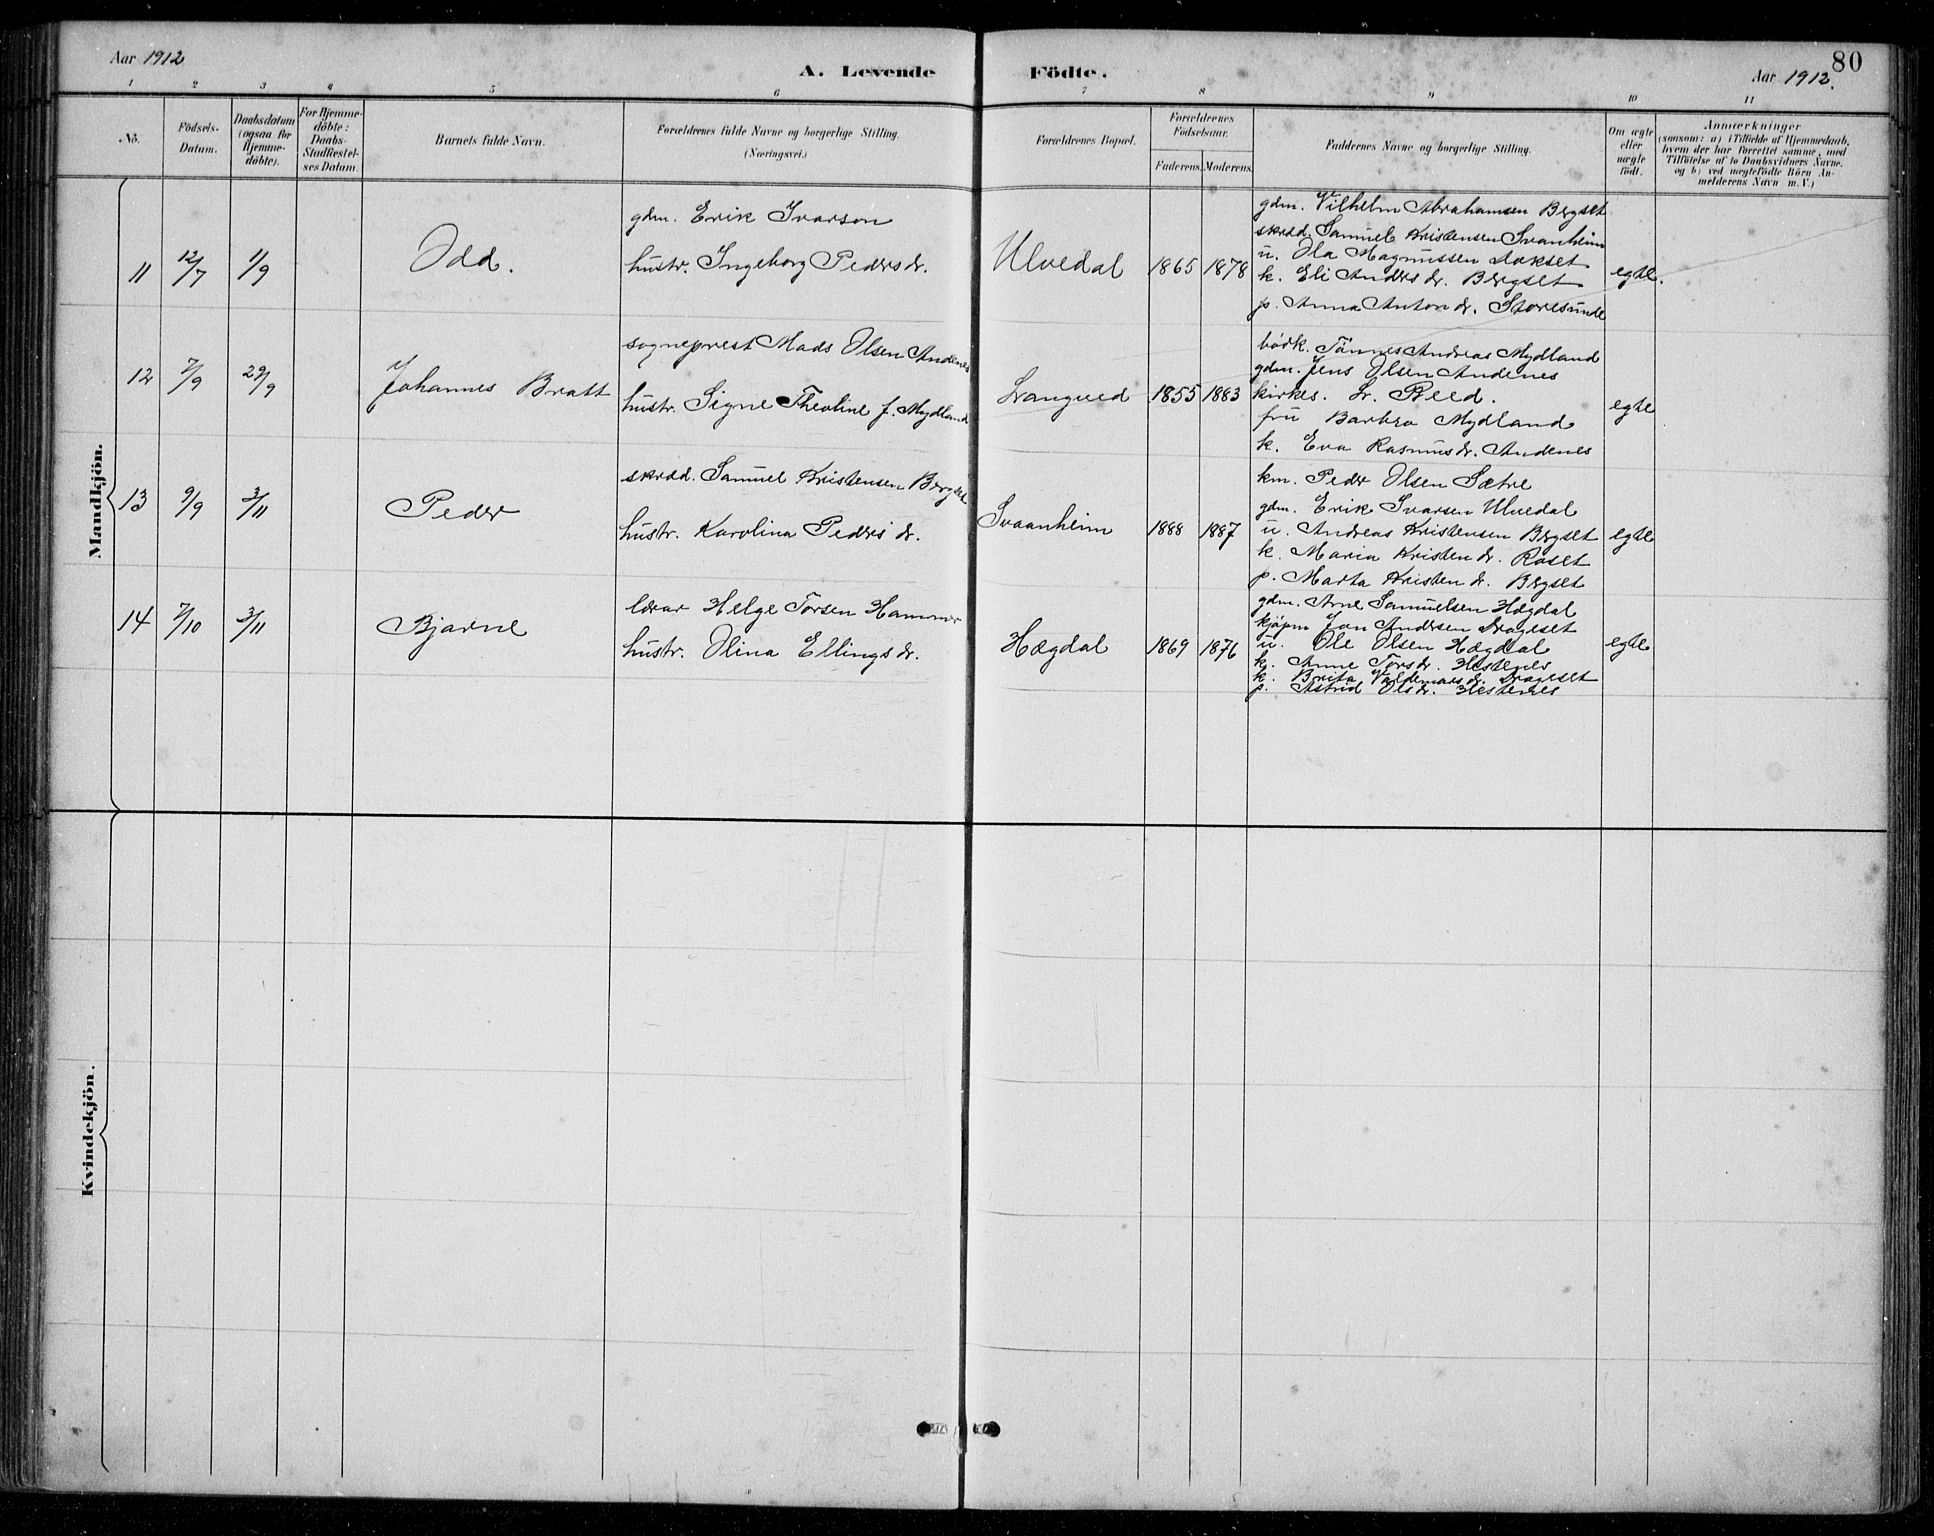 Aar 1912
A. Levende Födte.
80
Aar 1912.
1 2 3 4 5 6 7 8 9 10 11
No.
Födsels-Datum.
Daabsdatum (ogsaa for Hjemme-döbte).
For Hjemme-döbte: Daabs-Stadfæstel-ses Datum.
Barnets fulde Navn.
Forældrenes fulde Navne og borgerlige Stilling. (Næringsvei.)
Forældrenes Bopæl.
Forældrenes Födselsaar.
Faderens. Moderens.
Faddernes Navne og borgerlige Stilling.
Om ægte eller uægte födt.
Anmærkninger
(saasom: a) i Tilfælde af Hjemmedaab, hvem der har forrettet samme, med Tilföielse af to Daabsvidners Navne, og b) ved uægtefödte Börn An-melderens Navn m. V.)
Mandkjön.
11 12/7 1/9 Odd.
gdm. Erik Ivarson
hustr. Ingeborg Pedersdr.
Ulvedal 1865 1878
gdm. Vilhelm Abrahamsen Bergset
skrdd. Samuel Kristensen Svanheim
u. Ola Magnussen
k. Eli Andersdr. Bergset
p. Anna Antondr. Storesunde
egte.
12 7/9 29/9 Johannes Bratt
sogneprest Mads Olsen Andenes
hustr. Signe Theoline f. Mydland
Langved 1855 1883
bödk. Tönnes Andreas Mydland
gdm. Jens Olsen Andenes
kirkes. L. Reed.
fru Barbra Mydland
k. Eva Rasmusdr. Andenes
egte
13 9/9 3/11 Peder
skrdd. Samuel Kristensen Bergset
hustr. Karolina Pedersdr.
Svaanheim 1888 1887
km. Peder Olsen Sætre
gdm. Erik Ivarsen Ulvedal
u. Andreas Kristensen Bergset
k. Maria Kristendr. Roset
p. Marta Kristendr. Bergset
egte
14 7/10 3/11 Bjarne
lærar Helge Torsen Hammer
hustr. Olina Ellingsdr.
Hægdal 1869 1876
gdm. Arne Samuelsen Hægdal
kjöpm Jon Andersen Drageset
u. Ole Olsen Hægdal
k. Anne Torsdr. Hestenes
k. Brita Valdemarsdr. Drageset
p. Astrid Olsdr. Hestenes
egte
Kvindekjön.